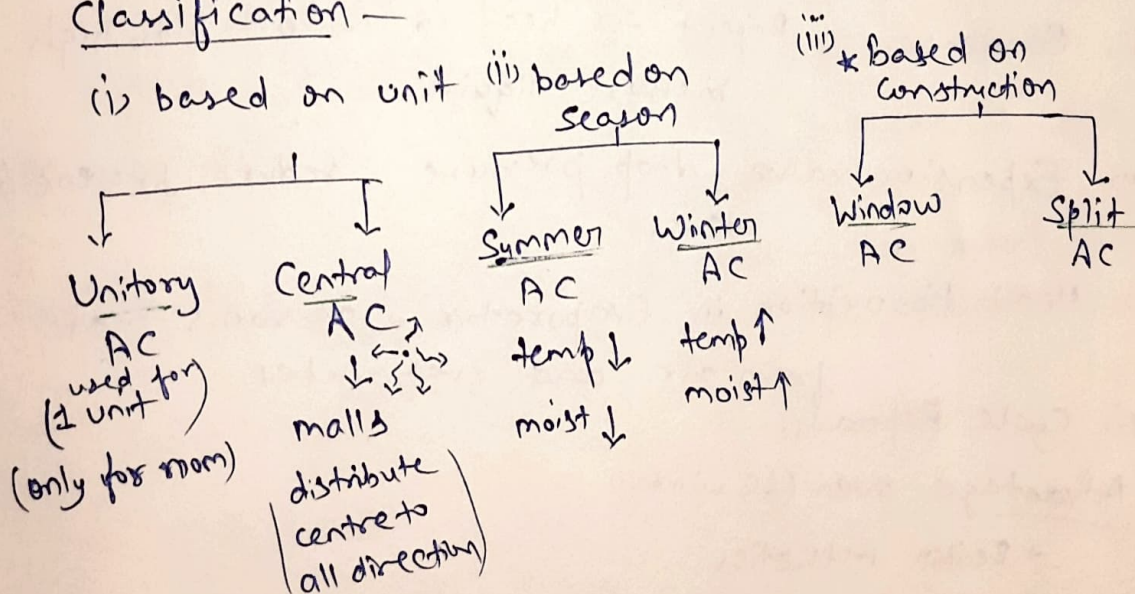 Classification —
(i) based on unit
Unitory
AC
used for
(1 unit)
(only for room)
Central
AC
malls
(distribute
centre to
all direction)
(ii) based on
season
Summer
AC
temp ↓
moist ↓
Winter
AC
temp ↑
moist ↑
(iii) * based on
construction
Window
AC
Split
AC